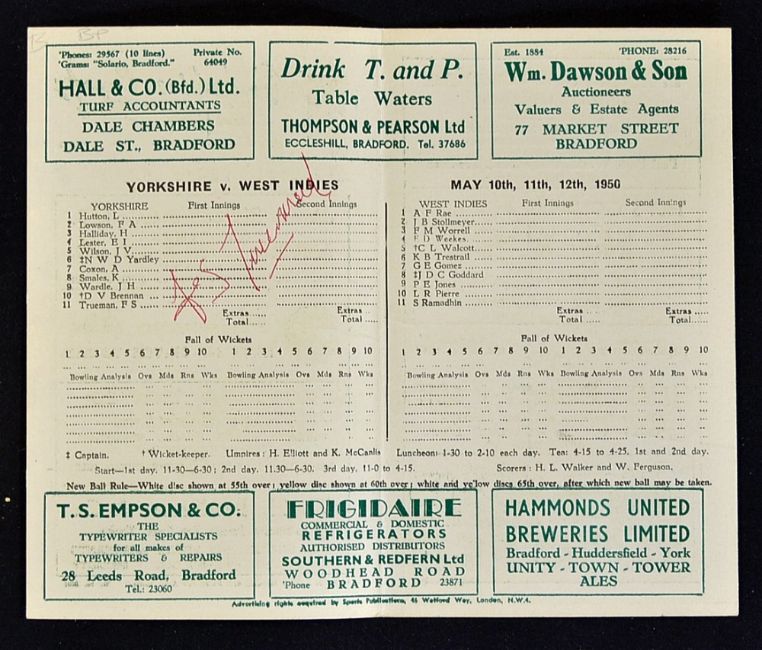 'Phones: 29567 (10 lines) Private No.
'Grams: "Solario, Bradford." 64049
HALL & CO. (Bfd.) Ltd.
TURF ACCOUNTANTS
DALE CHAMBERS
DALE ST., BRADFORD
Drink T. and P.
Table Waters
THOMPSON & PEARSON Ltd
ECCLESHILL, BRADFORD. Tel. 37686
Est. 1884 'PHONE: 28216
Wm. Dawson & Son
Auctioneers
Valuers & Estate Agents
77 MARKET STREET
BRADFORD
YORKSHIRE v. WEST INDIES
YORKSHIRE First Innings Second Innings
1 Hutton, L
2 Lowson, F A
3 Halliday, H
4 Lester, E I
5 Wilson, J V
6 ‡N W D Yardley
7 Coxon, A
8 Smales, K
9 Wardle, J H
10 †D V Brennan
11 Trueman, F S
Extras Extras
Total Total
F S Trueman
Fall of Wickets
1 2 3 4 5 6 7 8 9 10 1 2 3 4 5 6 7 8 9 10
Bowling Analysis Ovs Mds Rns Wks Bowling Analysis Ovs Mds Rns Wks
MAY 10th, 11th, 12th, 1950
WEST INDIES First Innings Second Innings
1 A F Rae
2 J B Stollmeyer
3 F M Worrell
4 E D Weekes
5 †C L Walcott
6 K B Trestrail
7 G E Gomez
8 ‡J D C Goddard
9 P E Jones
10 L R Pierre
11 S Ramadhin
Extras Extras
Total Total
Fall of Wickets
1 2 3 4 5 6 7 8 9 10 1 2 3 4 5 6 7 8 9 10
Bowling Analysis Ovs Mds Rns Wks Bowling Analysis Ovs Mds Rns Wks
‡ Captain. † Wicket-keeper. Umpires: H. Elliott and K. McCanlis Luncheon: 1-30 to 2-10 each day. Tea: 4-15 to 4-25, 1st and 2nd day.
Start—1st day, 11.30—6.30; 2nd day, 11.30—6.30. 3rd day, 11-0 to 4-15. Scorers: H. L. Walker and W. Ferguson.
New Ball Rule—White disc shown at 55th over; yellow disc shown at 60th over; white and yellow discs 65th over, after which new ball may be taken.
T. S. EMPSON & CO.
THE
TYPEWRITER SPECIALISTS
for all makes of
TYPEWRITERS & REPAIRS
28 Leeds Road, Bradford
Tel.: 23060
FRIGIDAIRE
COMMERCIAL & DOMESTIC
REFRIGERATORS
AUTHORISED DISTRIBUTORS
SOUTHERN & REDFERN Ltd
WOODHEAD ROAD
'Phone BRADFORD 23871
HAMMONDS UNITED
BREWERIES LIMITED
Bradford - Huddersfield - York
UNITY - TOWN - TOWER
ALES
Advertising rights acquired by Sports Publications, 46 Watford Way, London, N.W.4.